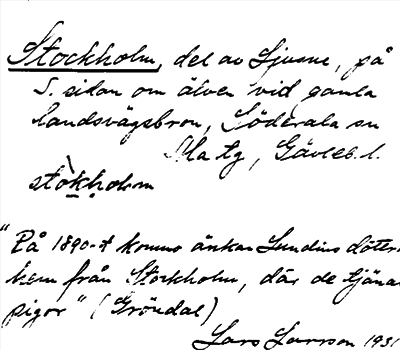 Stockholm, del av Ljusne, på
S. sidan om älven vid gamla
landsvägsbron, Söderala sn
Ala tg, Gävleb. l.
stòkholm
"På 1890-t komms änkan Lundins dötter
hem från Stockholm, där de tjänat
pigor" (Gröndal)
Lars Larsson 1931